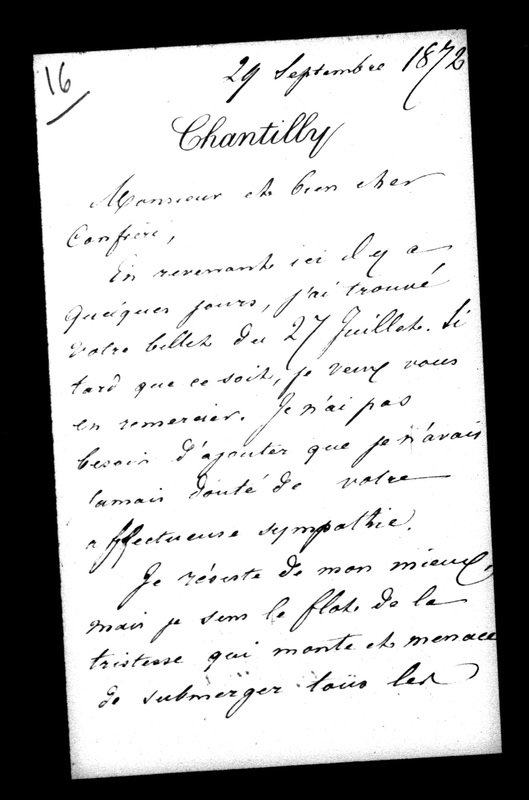 16
29 Septembre 1872
Chantilly
Monsieur et bien cher
Confrère,
En revenant ici il y a
quelques jours, j'ai trouvé
votre billet du 27 Juillet. Si
tard que ce soit, je veux vous
en remercier. Je n'ai pas
besoin d'ajouter que je n'avais
jamais douté de votre
affectueuse sympathie.
Je résiste de mon mieux,
mais je sens le flot de la
tristesse qui monte et menace
de submerger tous les